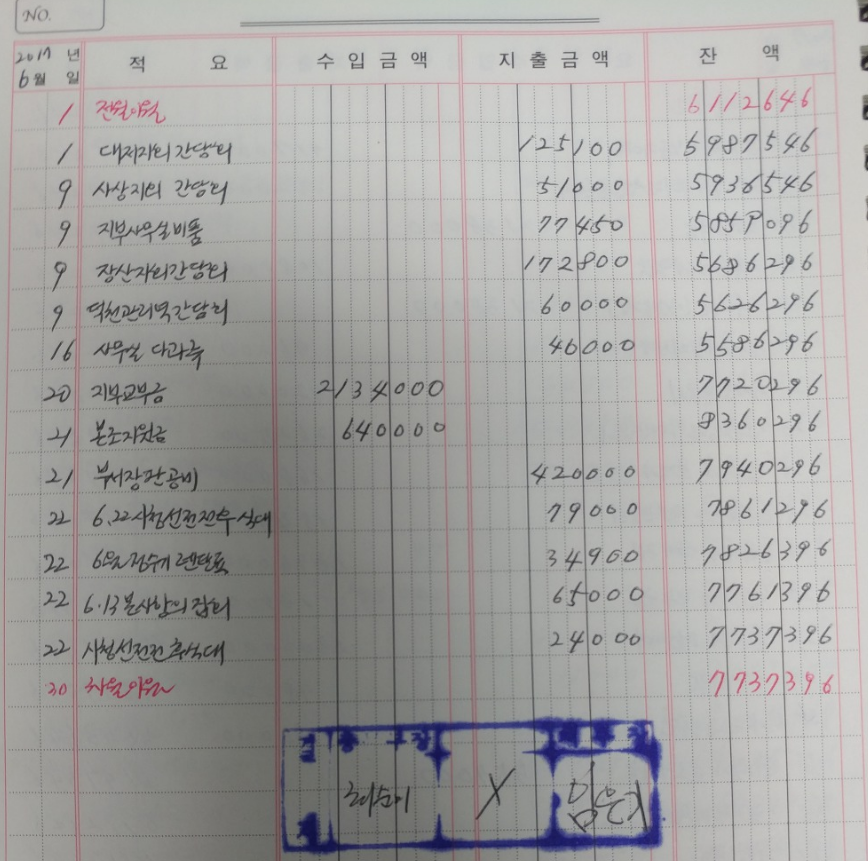 NO.
2017 년 6월 일 적 요 수입금액 지출금액 잔 액
1 전월이월 6112646
1 대저지회간담회 125100 5987546
9 사상지회 간담회 51000 5936546
9 지부사무실비품 77450 5859096
9 장산지회간담회 172800 5686296
9 덕천관리역간담회 60000 5626296
16 사무실 다과류 40000 5586296
20 지부교부금 2134000 7720296
21 본조지원금 640000 8360296
21 부서장판공비 420000 7940296
22 6.22시청선전전후식대 79000 7861296
22 6월정수기렌탈료 34900 7826396
22 6.13본사항의집회 65000 7761396
22 시청선전전후식대 24000 7737396
30 차월이월 7737396
결
재
X